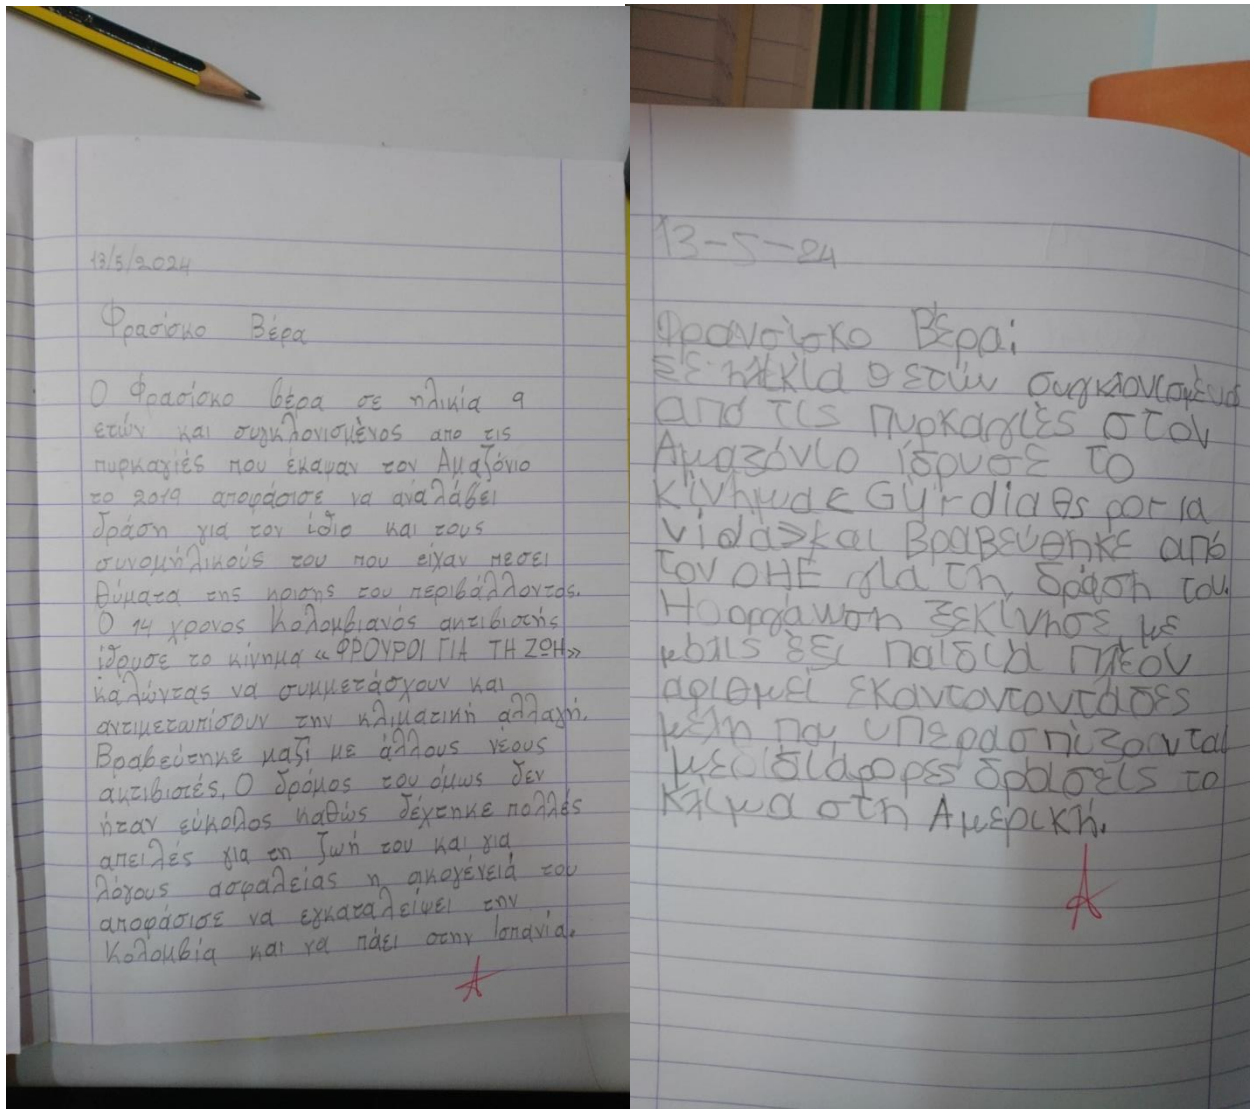 13/5/2024
Φρασίσκο Βέρα
Ο Φρασίσκο βέρα σε ηλικία 9
ετών και συγκλονισμένος απο τις
πυρκαγιές που έκαψαν τον Αμαζόνιο
το 2019 αποφάσισε να αναλάβει
δράση για τον ίδιο και τους
συνομήλικούς του που είχαν πεσει
θύματα της κρισης του περιβάλλοντος.
Ο 14 χρονος Κολομβιανός ακτιβιστής
ίδρυσε το κίνημα «ΦΡΟΥΡΟΙ ΓΙΑ ΤΗ ΖΩΗ»
καλώντας να συμμετάσχουν και
αντιμετωπίσουν την κλιματική αλλαγή.
Βραβεύτηκε μαζί με άλλους νέους
ακτιβιστές. Ο δρόμος του όμως δεν
ήταν εύκολος καθώς δέχτηκε πολλές
απειλές για τη ζωή του και για
λόγους ασφαλείας η οικογένειά του
αποφάσισε να εγκαταλείψει την
Κολομβία και να πάει στην Ισπανία.
Α
13-5-24
Φρανσίσκο Βέρα:
Σε ηλικία 9 ετών συγκλονισμένος
από τις πυρκαγιές στον
Αμαζόνιο ίδρυσε το
κίνημα < por la
vida>και βραβεύθηκε από
τον ΟΗΕ για τη δράση του.
Η οργάνωση ξεκίνησε με
μόλις έξι παιδιά πλέον
αριθμεί εκαντοντοντάσες
μέλη που υπερασπίζονται
με διάφορες δράσεις το
κλίμα στη Αμερική.
Α